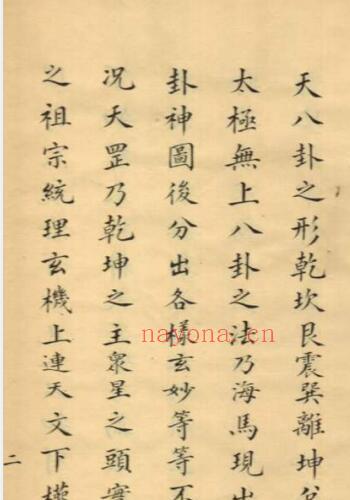 天八卦之形乾坎艮震巽離坤兌
太極無上八卦之法乃海馬現出
卦神圖後分出各樣玄妙等等不
况天罡乃乾坤之主衆星之頭實
之祖宗統理玄機上連天文下
二
nayona.cn